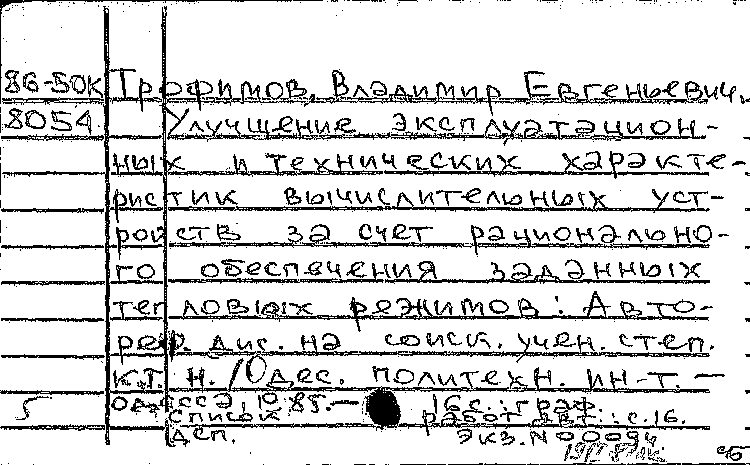 86-50к Трофимов, Владимир Евгеньевич.
8054 Улучшение эксплуатацион-
ных и технических характе-
ристик вычислительных уст-
ройств за счет рационально-
го обеспечения заданных
тепловых режимов: Авто-
реф. дис. на соиск. учен. степ.
к.т.н. / Одес. политехн. ин-т. –
Одесса, 1985. – 16 с.: граф.
5 Список работ авт.: с. 16.
Дсп. Экз. N 00094